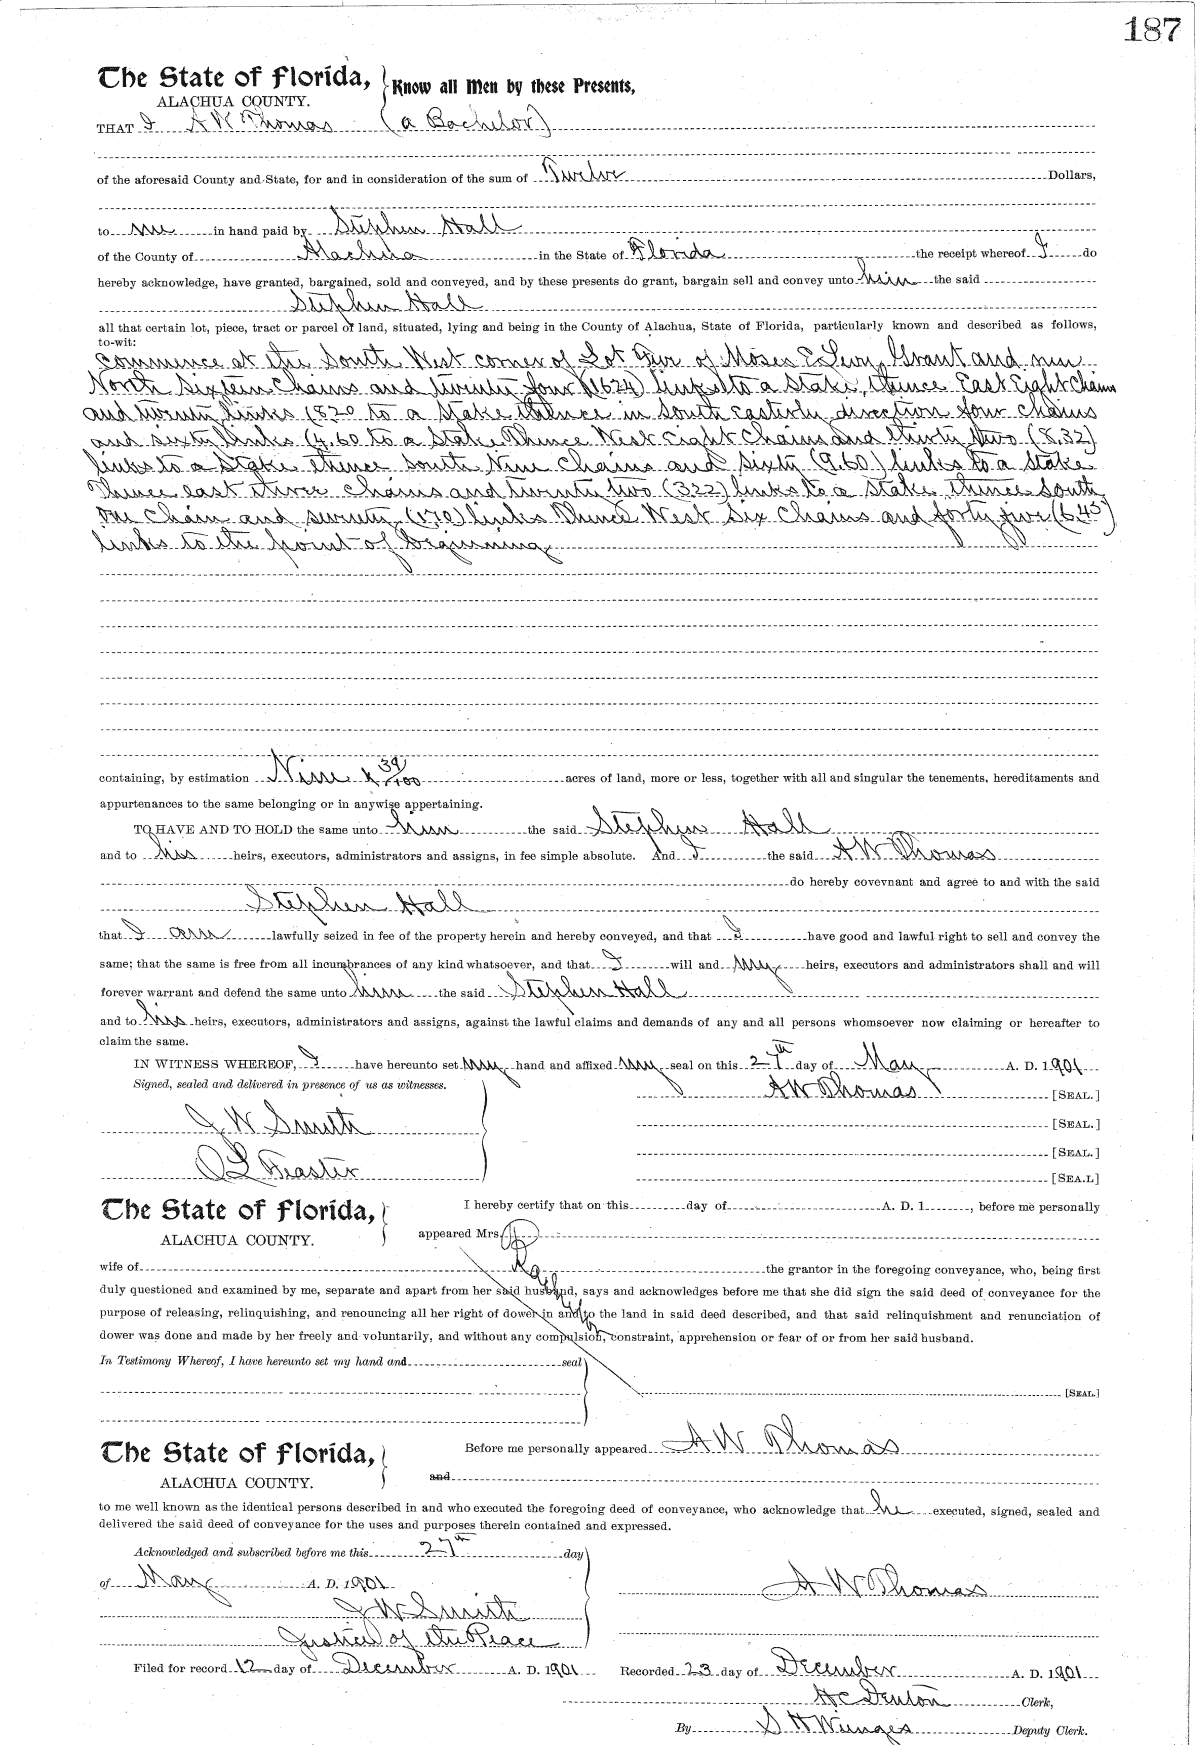 187
The State of Florida,
ALACHUA COUNTY.
Know all Men by these Presents,
THAT I A W Thomas (a Bachelor)
of the aforesaid County and State, for and in consideration of the sum of Twelve Dollars,
to me in hand paid by Stephen Hall
of the County of Alachua in the State of Florida the receipt whereof I do
hereby acknowledge, have granted, bargained, sold and conveyed, and by these presents do grant, bargain sell and convey unto him the said
Stephen Hall
all that certain lot, piece, tract or parcel of land, situated, lying and being in the County of Alachua, State of Florida, particularly known and described as follows,
to-wit:
Commence at the South West corner of Lot of Moses E Levy Grant and run
North Sixteen Chains and twenty four (1624) links to a Stake, thence East Eight Chains
and twenty links (820 to a Stake thence in South Easterly direction four chains
and sixty links (4.60 to a Stake Thence West Eight Chains and thirty two (8.32)
links to a Stake thence South Nine Chains and Sixty (9.60) links to a Stake
Thence east three chains and twenty two (322) links to a Stake thence South
one Chain and seventy (170) links Thence West Six Chains and forty five (6.45)
links to the point of beginning
containing, by estimation Nine & 39/100 acres of land, more or less, together with all and singular the tenements, hereditaments and
appurtenances to the same belonging or in anywise appertaining.
TO HAVE AND TO HOLD the same unto him the said Stephen Hall
and to his heirs, executors, administrators and assigns, in fee simple absolute. And I the said A W Thomas
do hereby covevnant and agree to and with the said
Stephen Hall
that I am lawfully seized in fee of the property herein and hereby conveyed, and that I have good and lawful right to sell and convey the
same; that the same is free from all incumbrances of any kind whatsoever, and that I will and my heirs, executors and administrators shall and will
forever warrant and defend the same unto him the said Stephen Hall
and to his heirs, executors, administrators and assigns, against the lawful claims and demands of any and all persons whomsoever now claiming or hereafter to
claim the same.
IN WITNESS WHEREOF, I have hereunto set my hand and affixed my seal on this 27th day of May A. D. 1901
Signed, sealed and delivered in presence of us as witnesses.
A W Thomas [SEAL.]
J W Smith [SEAL.]
[SEAL.]
O L Feaster [SEA.L]
The State of Florida,
ALACHUA COUNTY.
I hereby certify that on this day of A. D. 1 , before me personally
appeared Mrs.
wife of the grantor in the foregoing conveyance, who, being first
duly questioned and examined by me, separate and apart from her said husband, says and acknowledges before me that she did sign the said deed of conveyance for the
purpose of releasing, relinquishing, and renouncing all her right of dower in and to the land in said deed described, and that said relinquishment and renunciation of
dower was done and made by her freely and voluntarily, and without any compulsion, constraint, apprehension or fear of or from her said husband.
In Testimony Whereof, I have hereunto set my hand and seal
[SEAL.]
The State of Florida,
ALACHUA COUNTY.
Before me personally appeared A W Thomas
and
to me well known as the identical persons described in and who executed the foregoing deed of conveyance, who acknowledge that he executed, signed, sealed and
delivered the said deed of conveyance for the uses and purposes therein contained and expressed.
Acknowledged and subscribed before me this 27th day
of May A. D. 1901
A W Thomas
J W Smith
Justice of the Peace
Filed for record 12 day of December A. D. 1901 Recorded 23 day of December A. D. 1901
H C Denton Clerk,
By S H Wienges Deputy Clerk.